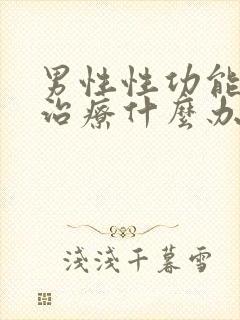 男性性功能
治療什麼办
淺淺千暮雪